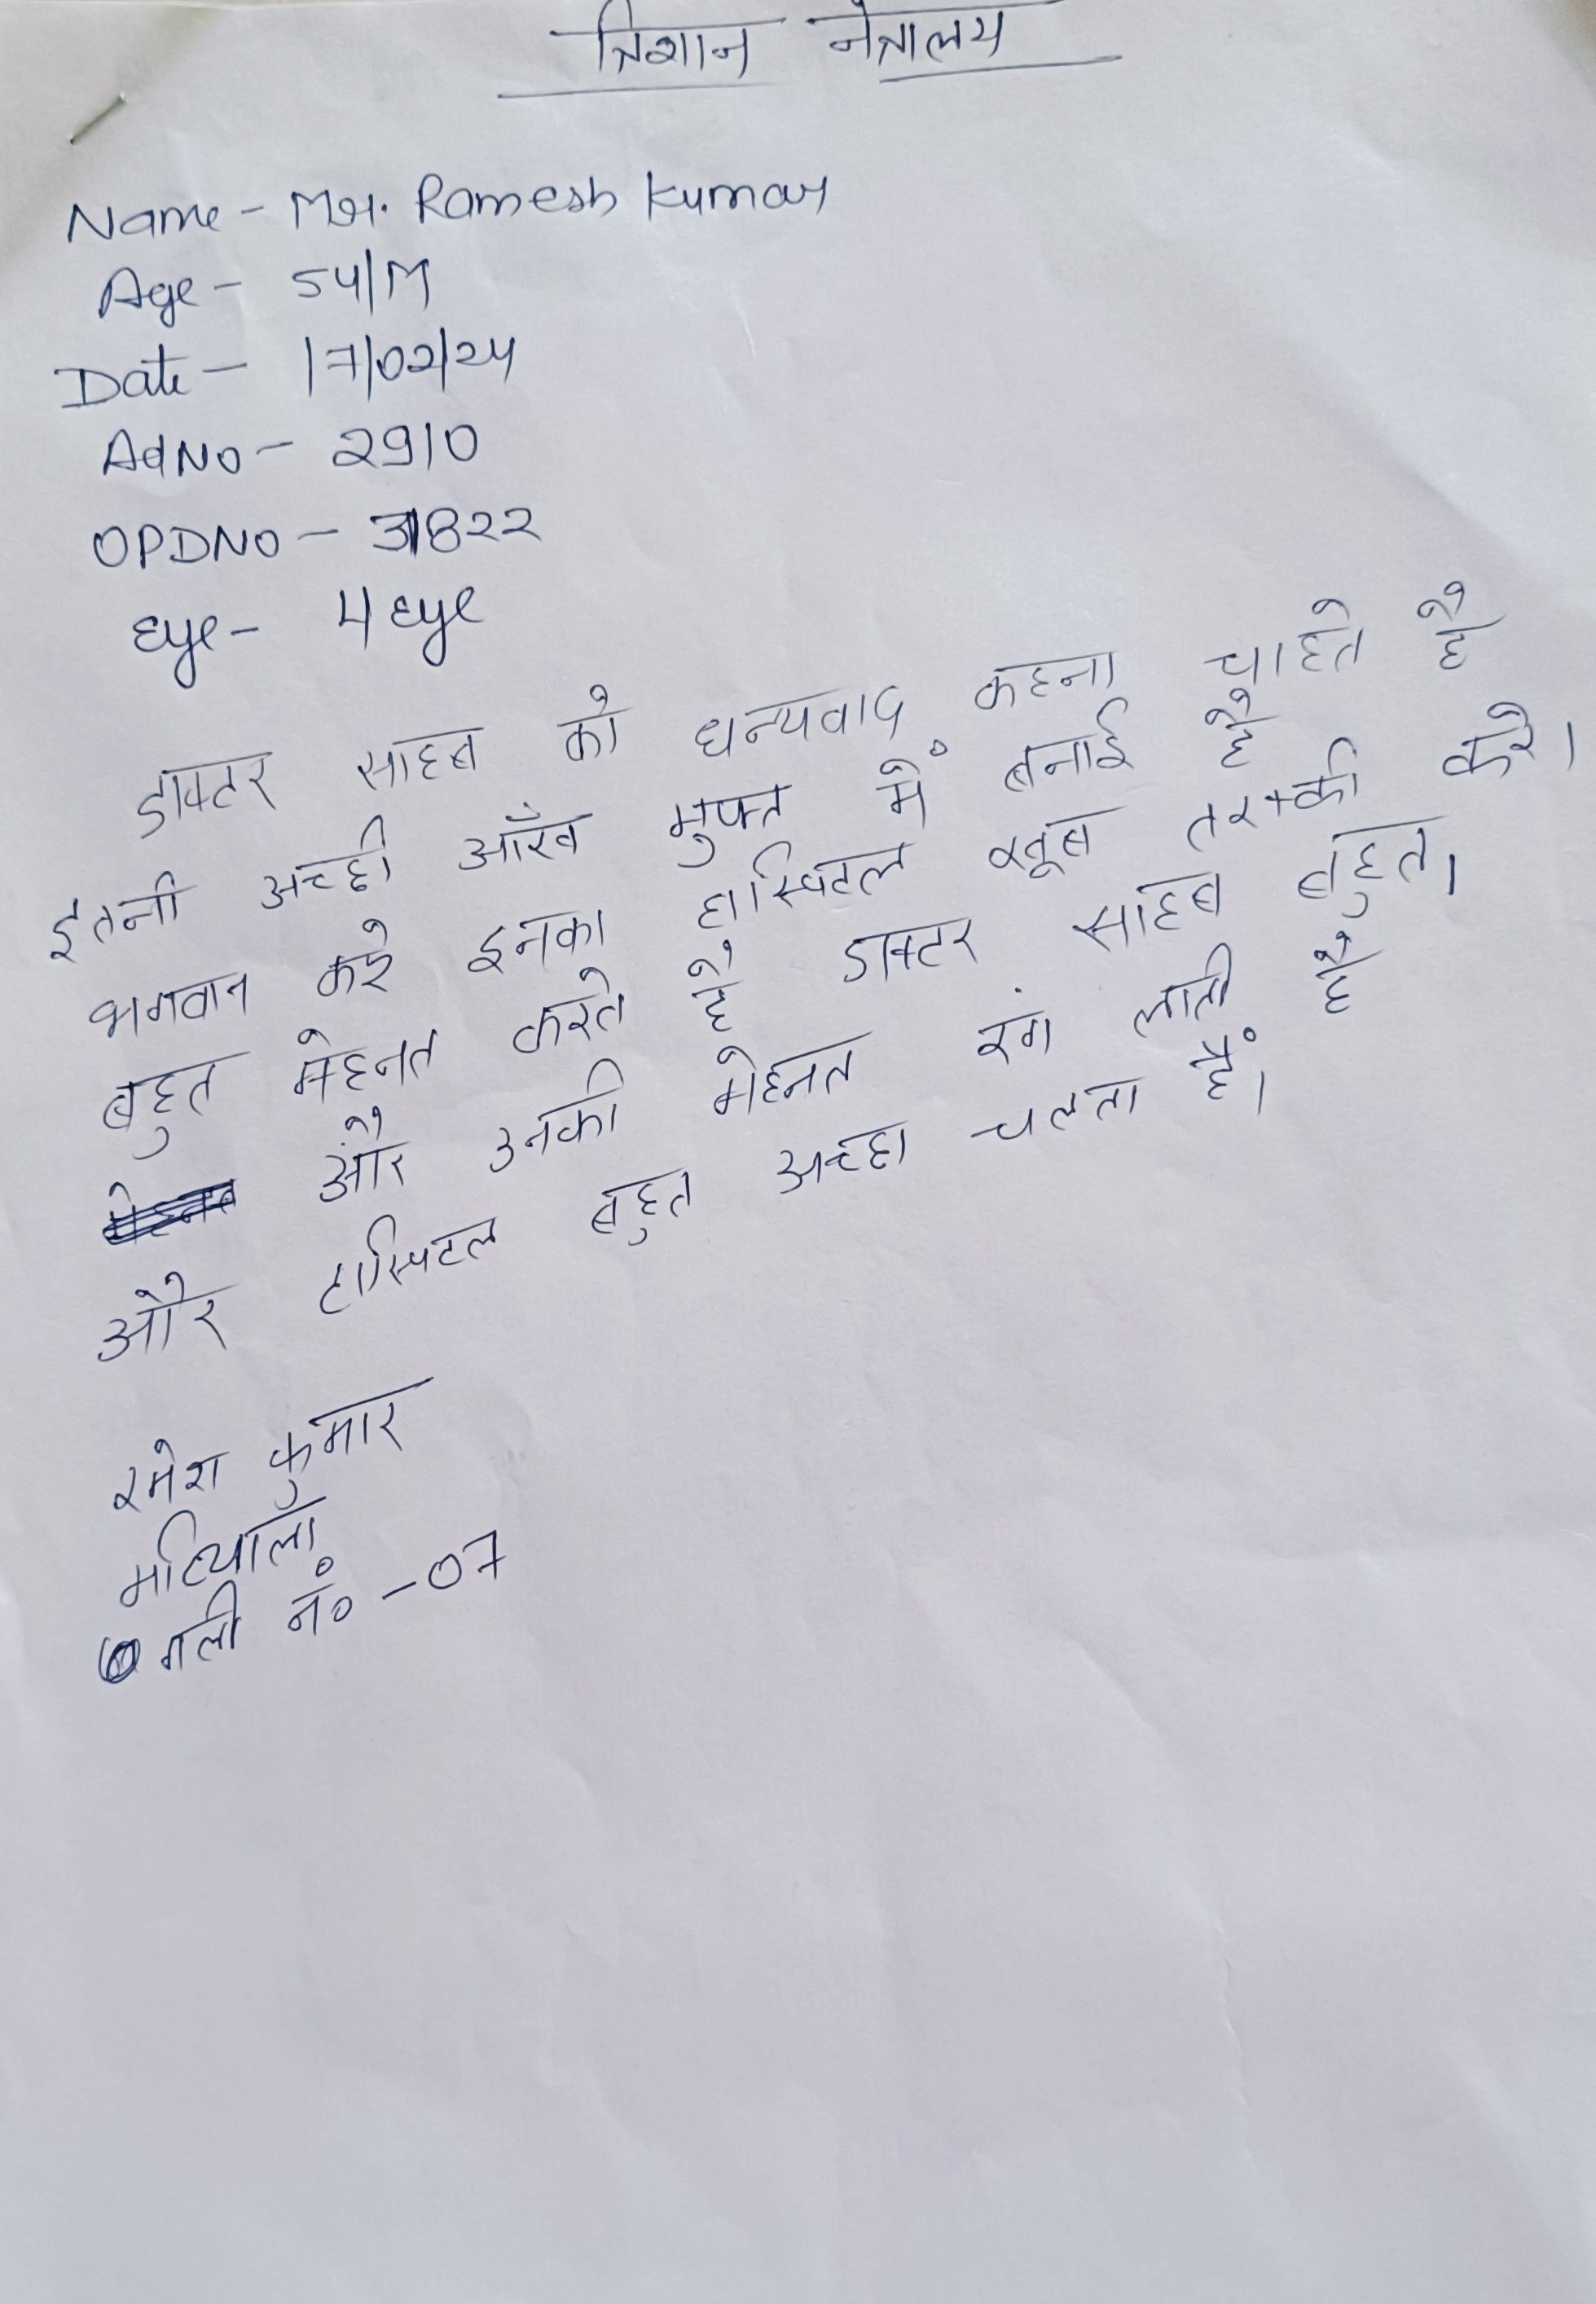 त्रिशान नेत्रालय
Name - Mr. Ramesh Kumar
Age - 54/M
Date - 17/02/24
AdNo - 2910
OPDNO - 31822
Eye - 4 Eye
डाक्टर साहब को धन्यवाद कहना चाहते है
इतनी अच्छी आँख मुफ्त में बनाई है
भगवान करे इनका हास्पिटल खूब तरक्की करे।
बहुत मेहनत करते है डाक्टर साहब बहुत।
और उनकी मेहनत रंग लाती है
और हास्पिटल बहुत अच्छा चलता हैं।
रमेश कुमार
मटियाला
गली नं० - 07